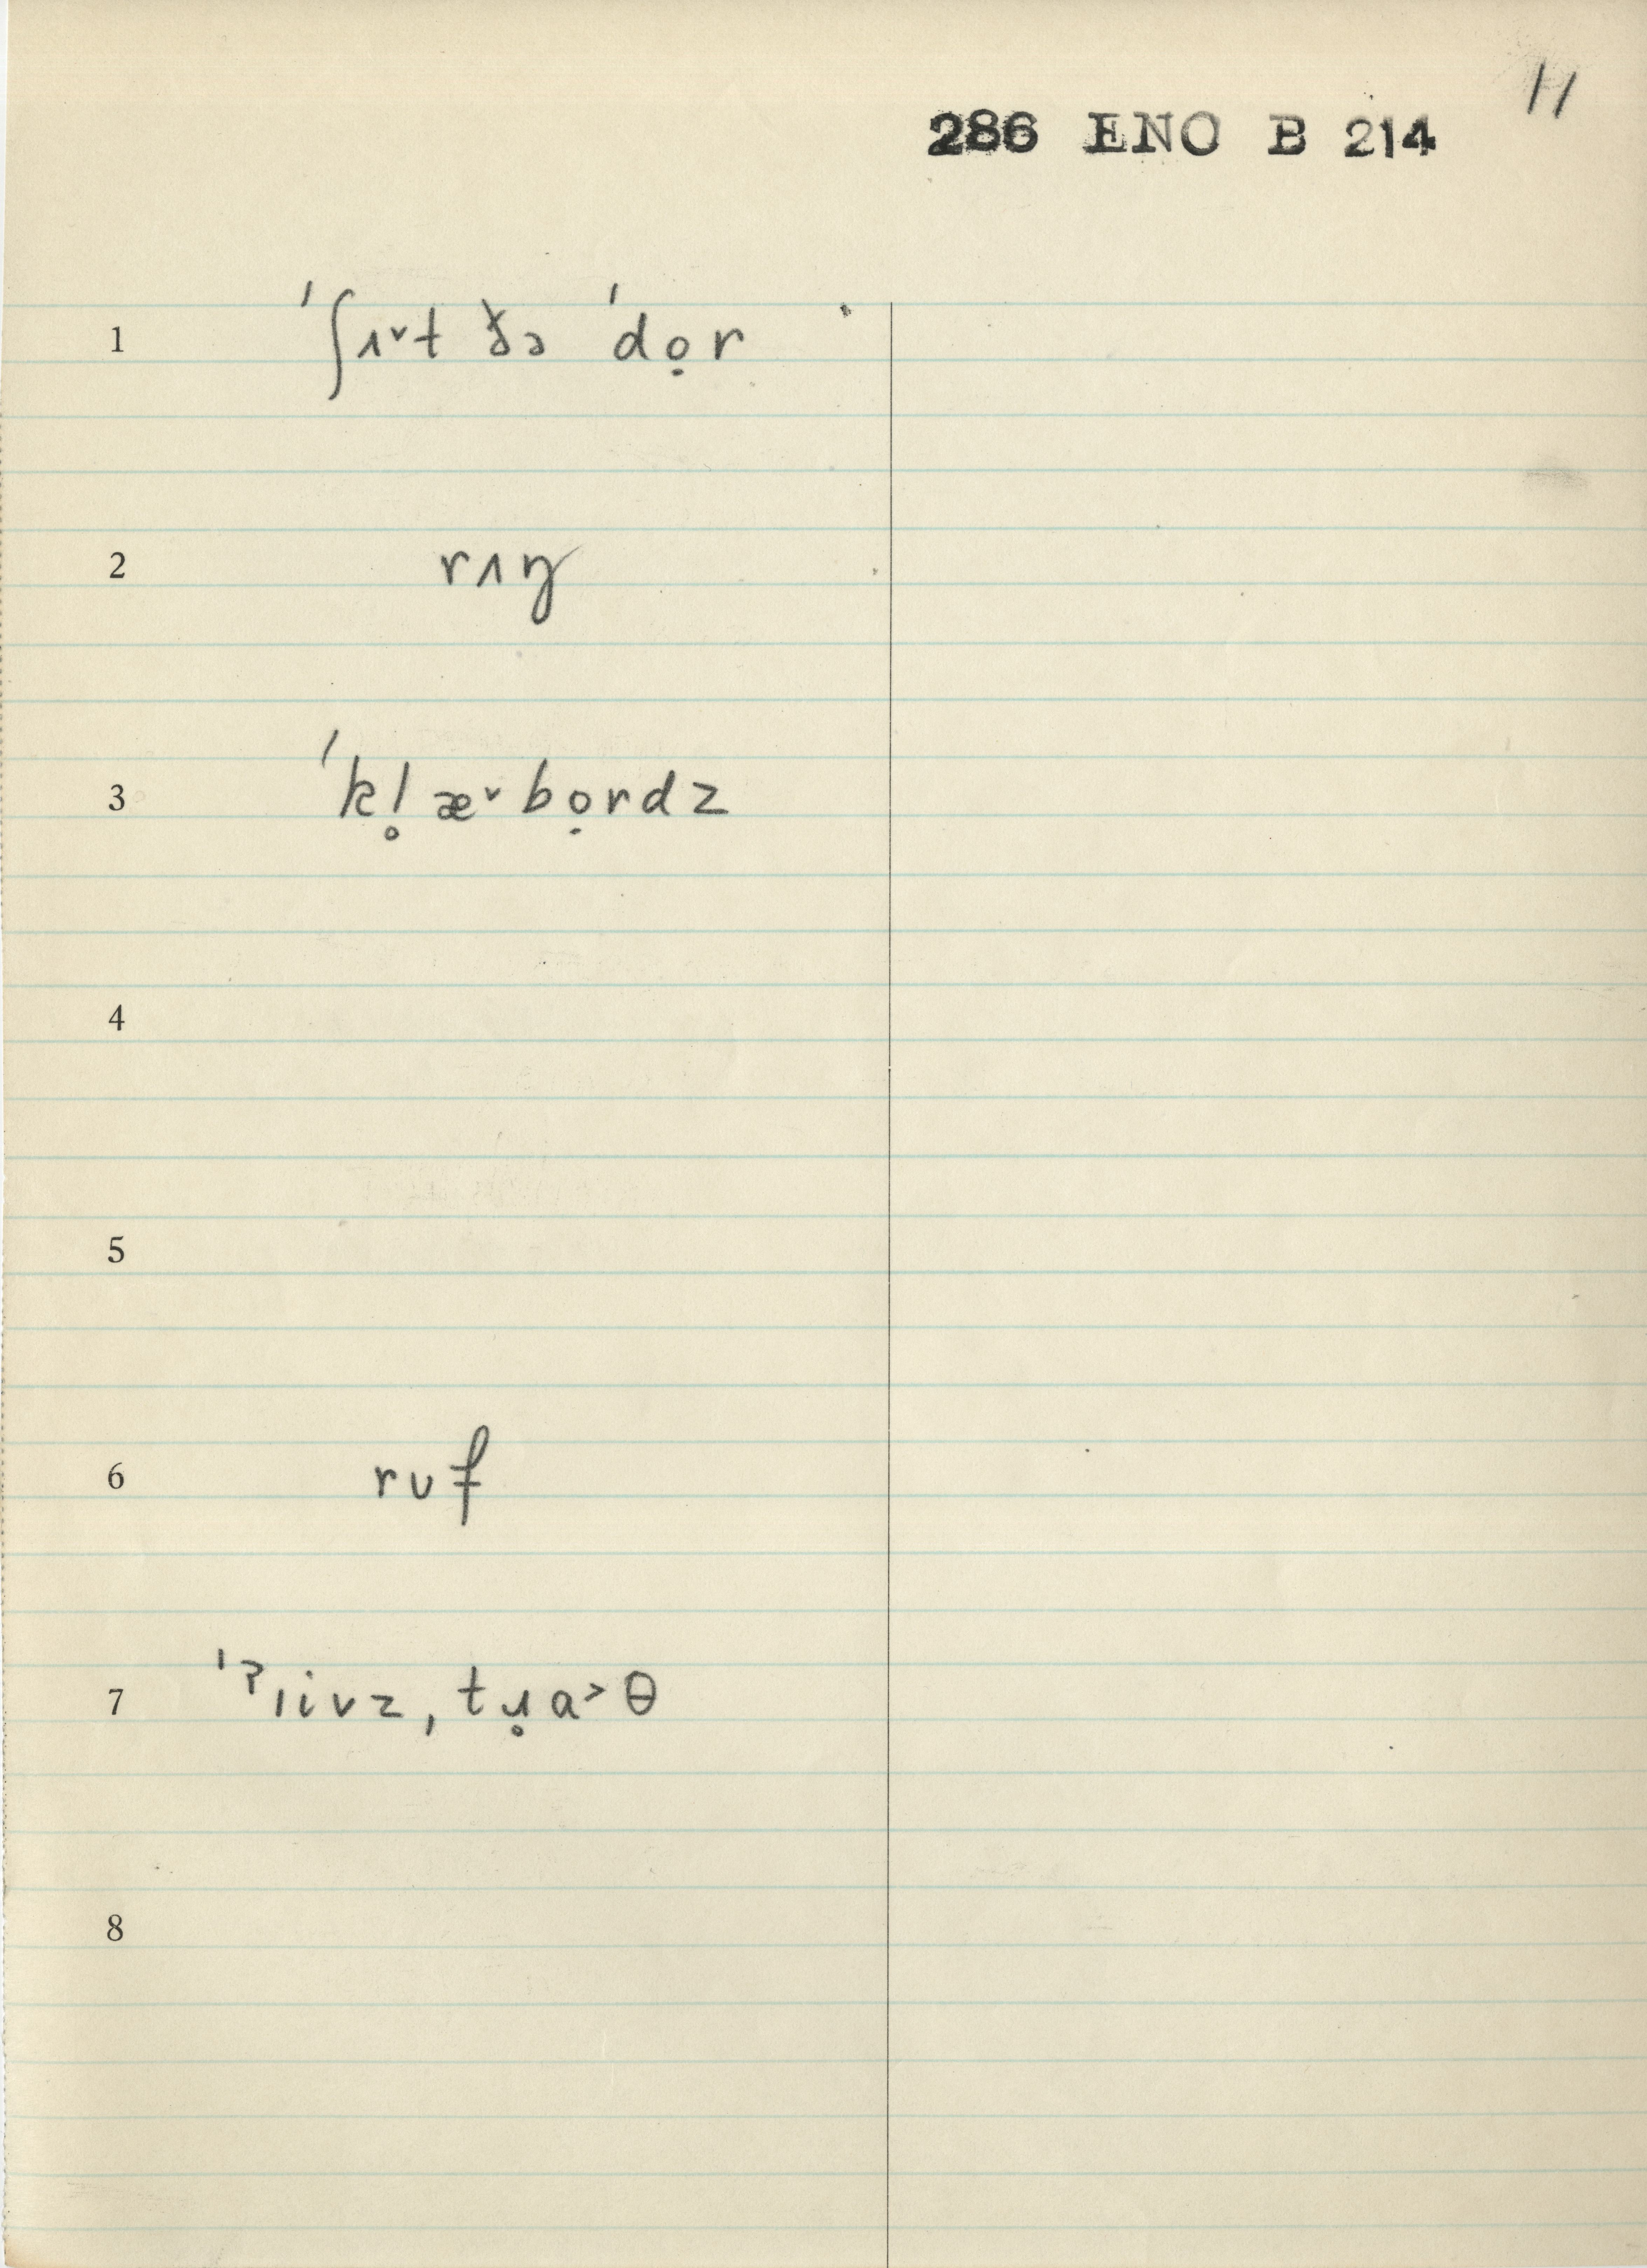 11
286 ENO B 214
1 ˈʃʌ˅t ðə ˈdọr
2 rʌŋ
3 ˈkl̥æ˅bọrdz
4
5
6 ruf
7 ˈˀıivz, tɹ̥a˃θ
8